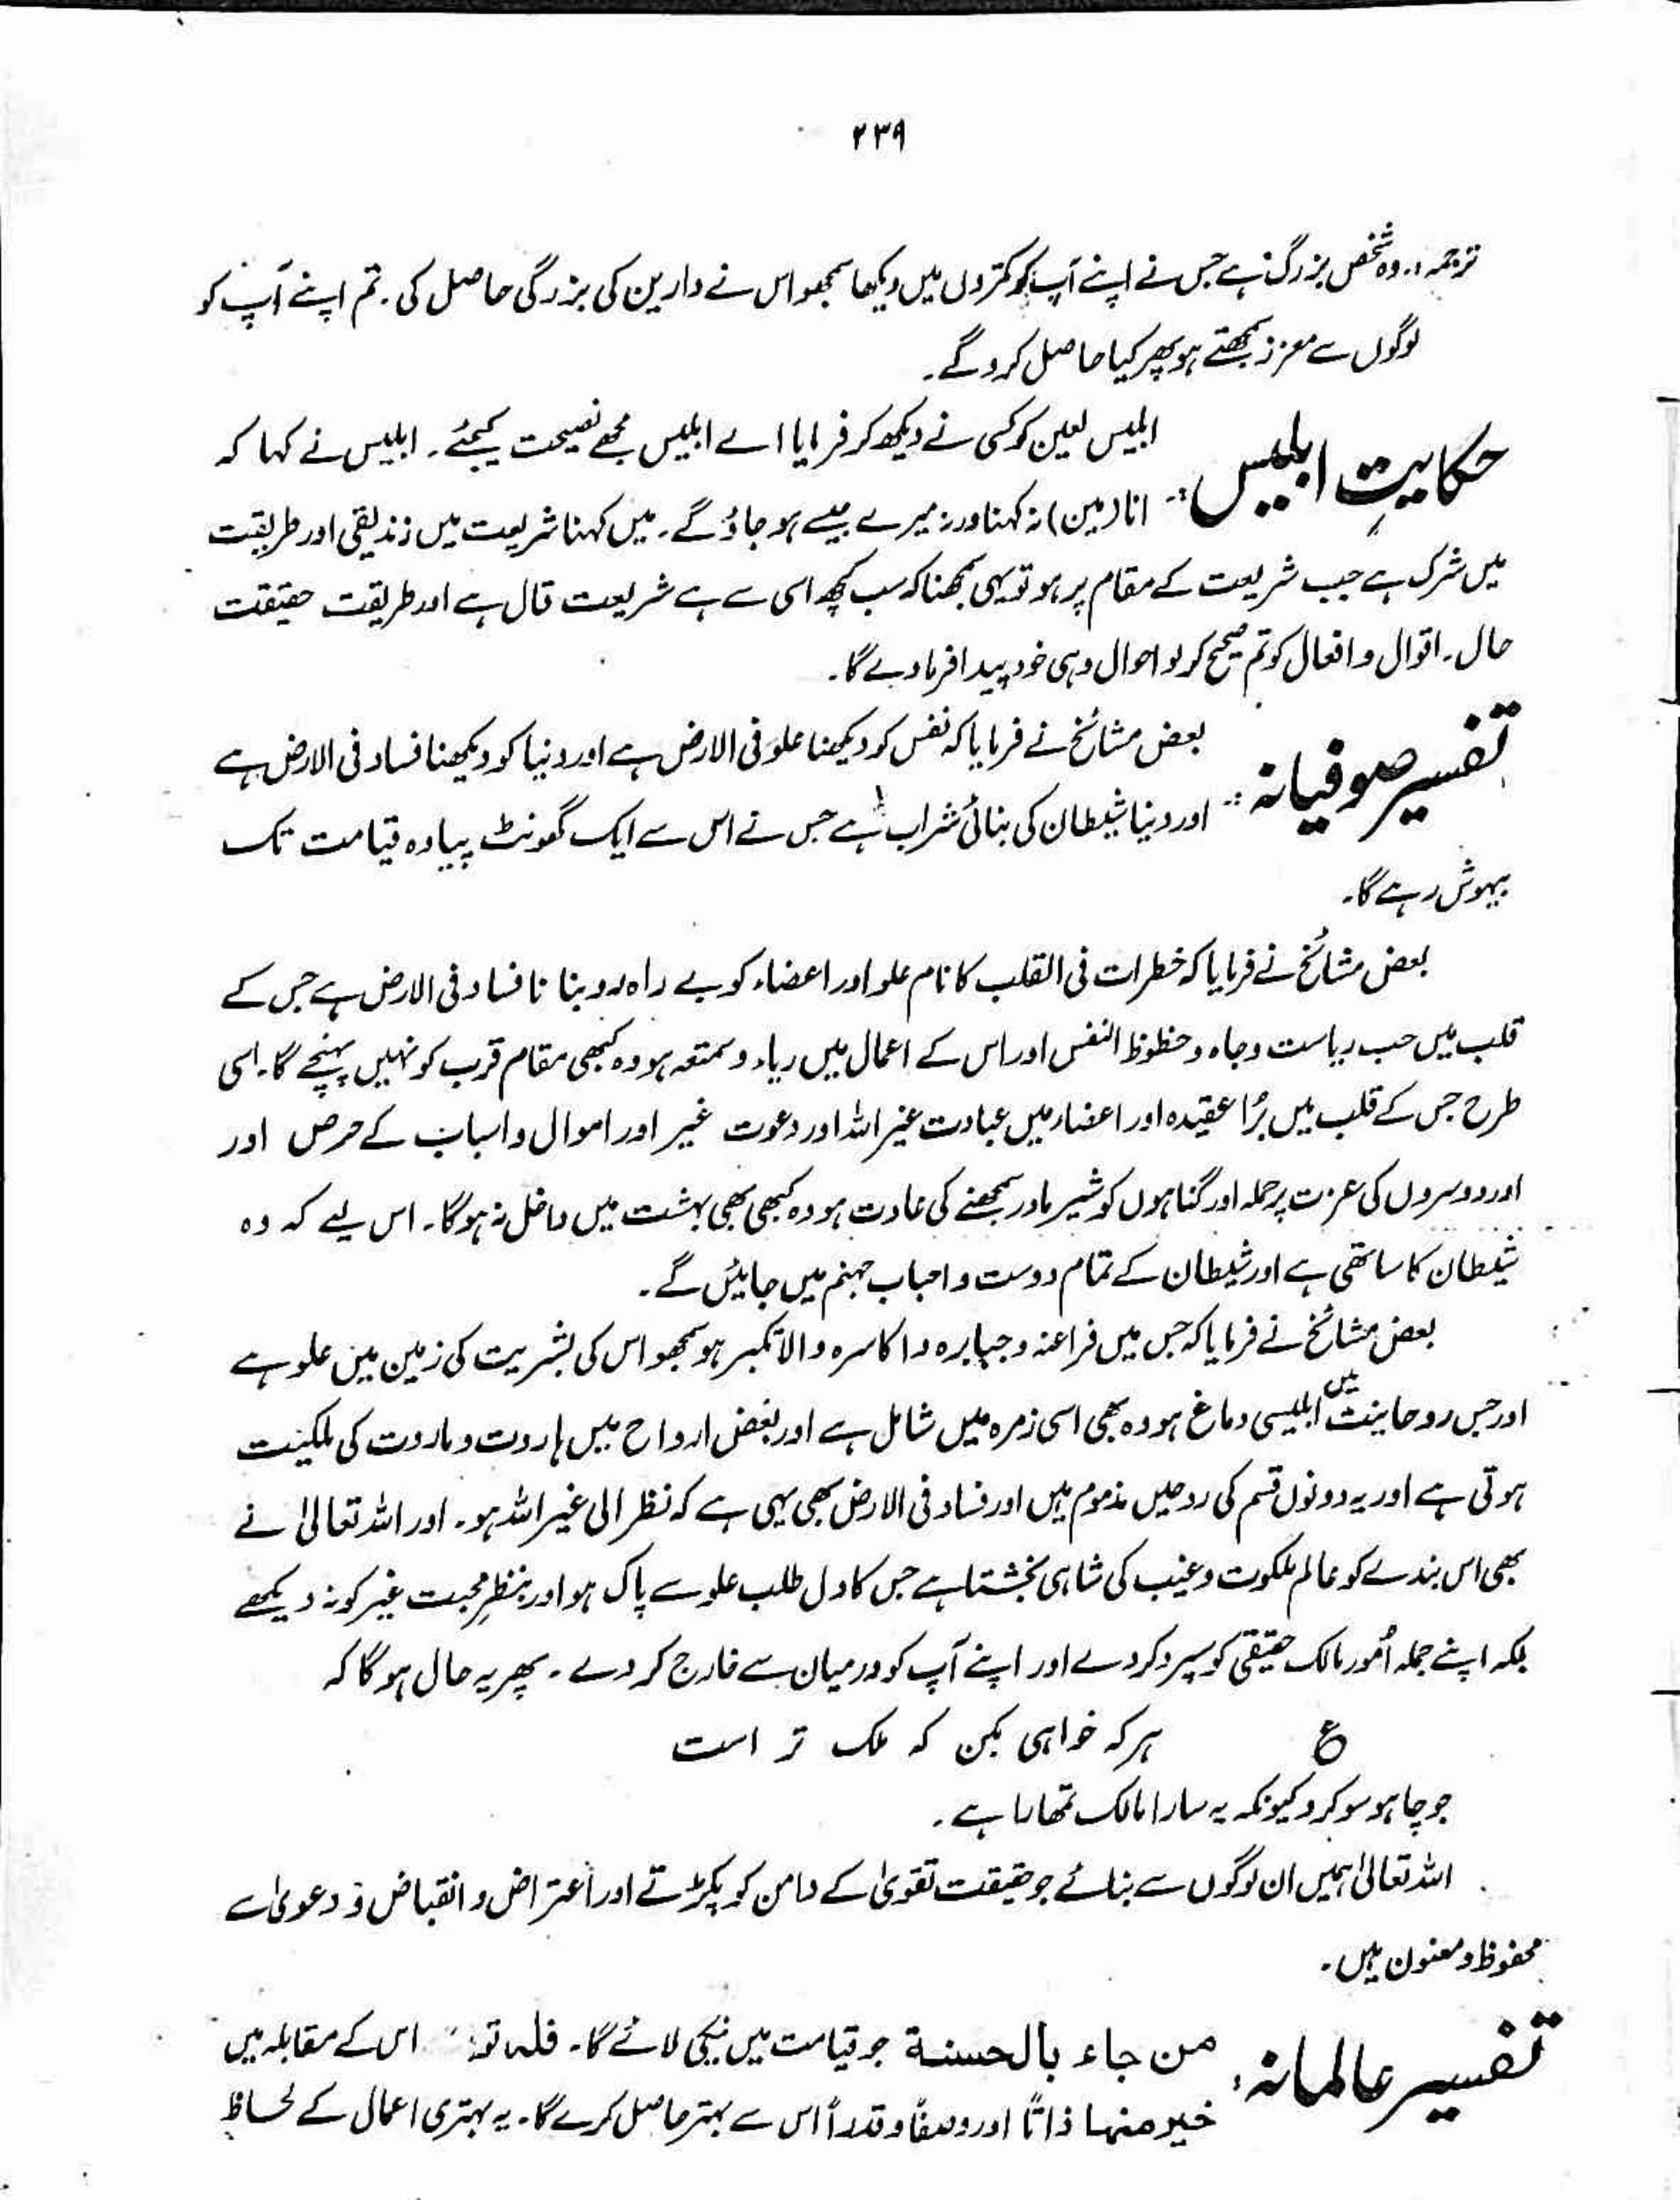 ۲۳۹
ترجمہ:۔ وہ شخص بزرگ ہے جس نے اپنے آپ کو کمتروں میں دیکھا سمجھو اس نے دارین کی بزرگی حاصل کی۔ تم اپنے آپ کو
لوگوں سے معزز سمجھتے ہو پھر کیا حاصل کرو گے۔
حکایتِ ابلیس:۔ ابلیس لعین کو کسی نے دیکھ کر فرمایا اے ابلیس مجھے نصیحت کیجئے۔ ابلیس نے کہا کہ
انا (میں) نہ کہنا ورنہ میرے جیسے ہو جاؤ گے۔ میں کہنا شریعت میں زندیقی اور طریقت
میں شرک ہے جب شریعت کے مقام پر ہو تو یہی سمجھنا کہ سب کچھ اسی سے ہے شریعت قال ہے اور طریقت حقیقت
حال۔ اقوال و افعال کو تم صحیح کر لو احوال وہی خود پیدا فرما دے گا۔
تفسیر صوفیانہ:۔ بعض مشائخ نے فرمایا کہ نفس کو دیکھنا علو فی الارض ہے اور دنیا کو دیکھنا فساد فی الارض ہے
اور دنیا شیطان کی بنائی شراب ہے جس نے اس سے ایک گھونٹ پیا وہ قیامت تک
بیہوش رہے گا۔
بعض مشائخ نے فرمایا کہ خطرات فی القلب کا نام علو اور اعضاء کو بے راہ رو بنا نا فساد فی الارض ہے جس کے
قلب میں حب ریاست و جاہ و حظوظ النفس اور اس کے اعمال میں ریاء و سمتعہ ہو وہ کبھی مقام قرب کو نہیں پہنچے گا۔ اسی
طرح جس کے قلب میں بُرا عقیدہ اور اعضاء میں عبادت غیر اللہ اور دعوت غیر اور اموال و اسباب کے حرص اور
اور دوسروں کی عزت پر حملہ اور گناہوں کو شیر مادر سمجھنے کی عادت ہو وہ کبھی بھی بہشت میں داخل نہ ہو گا۔ اس لیے کہ وہ
شیطان کا ساتھی ہے اور شیطان کے تمام دوست و احباب جہنم میں جائیں گے۔
بعض مشائخ نے فرمایا کہ جس میں فراعنہ و جبابرہ و اکاسرہ والا تکبر ہو سمجھو اس کی بشریت کی زمین میں علو ہے
اور جس روحانیت میں ابلیسی دماغ ہو وہ بھی اسی زمرہ میں شامل ہے اور بعض ارواح میں ہاروت و ماروت کی ملکیت
ہوتی ہے اور یہ دونوں قسم کی روحیں مذموم ہیں اور فساد فی الارض بھی یہی ہے کہ نظر الی غیر اللہ ہو۔ اور اللہ تعالیٰ نے
بھی اس بندے کو عالم ملکوت و غیب کی شاہی بخشتا ہے جس کا دل طلب علو سے پاک ہو اور بنظرِ محبت غیر کو نہ دیکھے
بلکہ اپنے جملہ اُمور مالک حقیقی کو سپرد کر دے اور اپنے آپ کو درمیان سے خارج کر دے۔ پھر یہ حال ہو گا کہ
ع ہرکہ خواہی بکن کہ ملک تر است
جو چاہو سو کرو کیونکہ یہ سارا مالک تمھارا ہے۔
اللہ تعالیٰ ہمیں ان لوگوں سے بنائے جو حقیقت تقویٰ کے دامن کو پکڑتے اور اعتراض و انقباض و دعویٰ سے
محفوظ و معنون ہیں۔
تفسیر عالمانہ: من جاء بالحسنة جو قیامت میں نیکی لائے گا۔ فلہ تو اس کے مقابلہ میں
خیر منہا ذاتاً اور وصفاً و قدراً اس سے بہتر حاصل کرے گا۔ یہ بہتری اعمال کے لحاظ